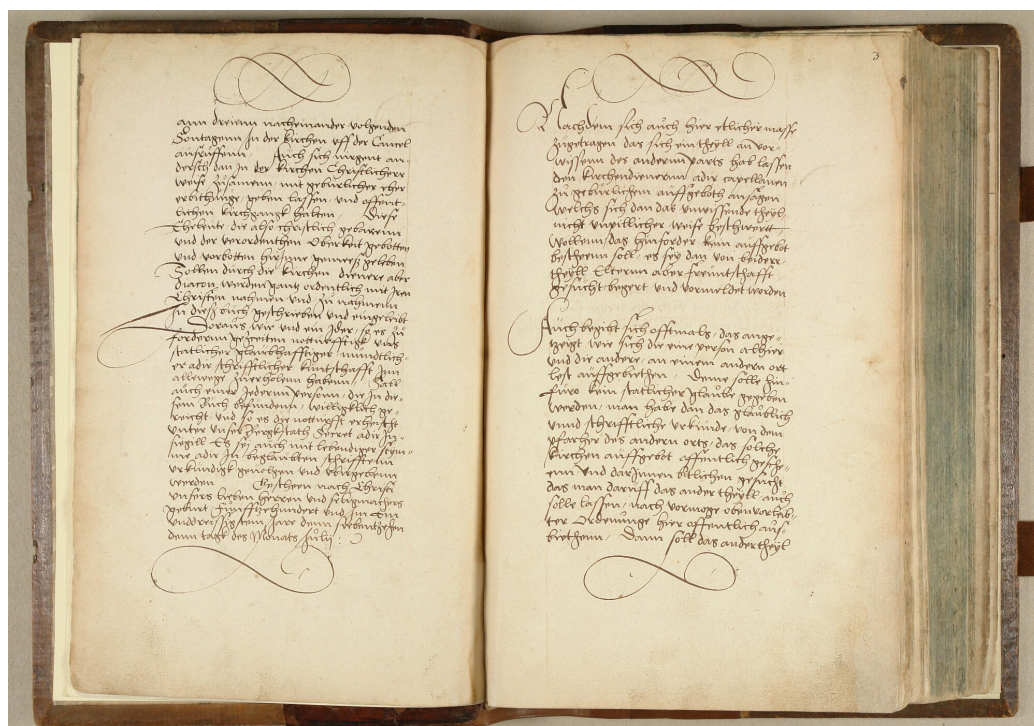 ann dreienn nacheinander volgenden
Sontagenn In der kirchen uff der Cantzel
ausruffenn, Auch sich nirgent an-
dersch dan In der kirchen Christlicherr
weise zusamenn, mit geburlicher eher
erbithunge, geben lassen, und offent-
lichen kirchgangk halten, Diese
Eheleute die also christlich gebarenn
und der verordenthen Oberkeit gebotten
und vorbotten hirinne gemeess geleben
Sollen durch die kirchen dienere aber
diacon, werden gantz ordentlich mit Iren
Christen nahmen und zu nahmenn
In diess buch geschrieben und eingeleibt
Doraus wir und ein Jder, so es zu
fordernn gezeiten notturfftigk, uns
statlicher glaubhafftiger mundtlich-
er adir schrifftlicher kuntschafft Inn
allewege zuerholenn habenn, Sall
auch einer Jedernn personn, die In die-
sem Buch befundenn, willigklich ge-
reicht, und so es die notturfft erheischt
unter unser Bergkstath Secret adir In-
siegill Es sey auch mit lebendiger stym-
me adir In beglaubten schrifftenn
urkundigk genolgen und ubirgebenn
werden Gescheen nach Christi
unsers lieben herren und seligmachers
geburt Funfftzehundert und im Ein
unddreissigstem Jare denn siebentzehen
denn tagk des Monats Julij :
3
Nachdem sich auch hier etlicher masse
zugetragen das sich ein theyll an vor-
wissenn des andernn parts hat lassen
den kirchendienernn adir capellanen
zu geburlichem auffgeboth ansagen
Welchs sich dan das unwissende theyl
nicht unpillicher weise beschwertt
Wollenn, das hinforder kein auffgebot
bescheenn soll, es sey dan von beiderr
theyll Elternn aber freuntschafft
gesucht, begert und vormeldet worden
Auch begibt sich offtmals, das ange-
tzeigt wie sich die eine person alhier
und die andere, an einem andern ort
lest auffgebiethen, Deme solle hin-
furo kein statlicher glaube gegeben
werden, man habe dan das glaublich
unnd schrifftliche urkunde, von dem
pfarher des andern orts, das solche
kirchen auffgebot offentlich gesche-
enn Und darinnen bitlichen gesucht
das man daruff das ander theyll auch
solle lassen, nach vormoge obenvorleib-
ter Ordenunge hier offentlich auf-
biethenn, Dann soll das ander theyl